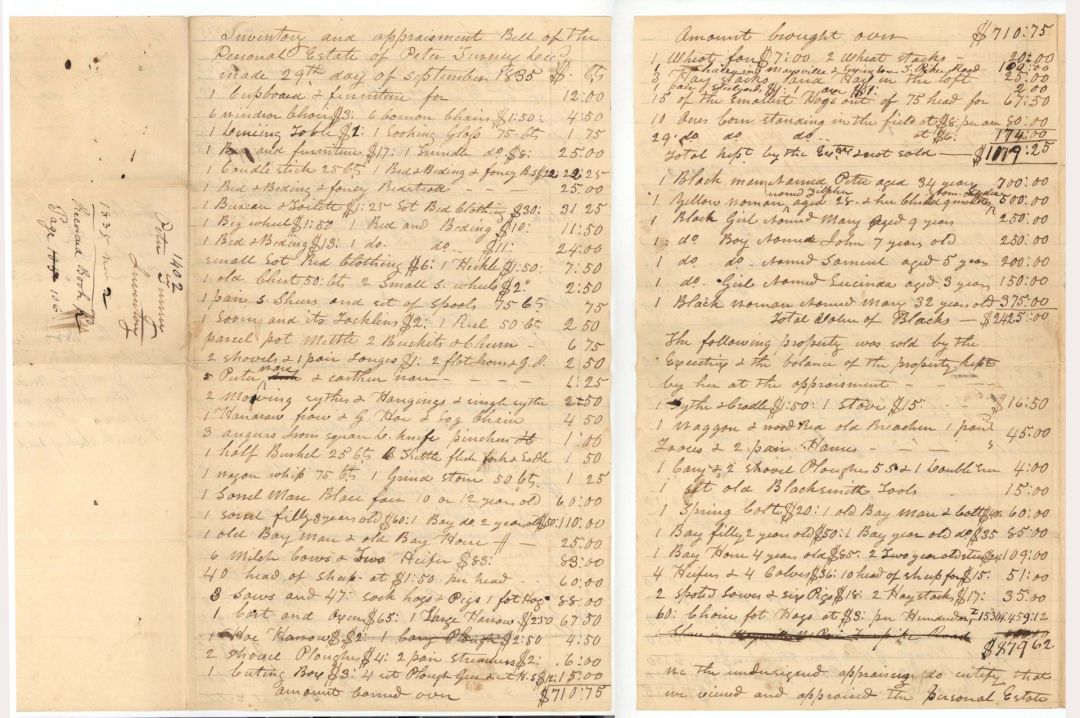 1402
Peter Turney
Inventory
1835 no 2
Record Book K
Page 106
Inventory and appraisment Bill of the
Personal Estate of Peter Turney Decd
made 29th day of september 1835 $ cts
1 Cupboard & furniture for 12:00
6 windsor Chairs $3: 6 common Chairs $1:50: 4:50
1 Dineing Table $1: 1 Looking Glass 75 cts 1 75
1 Bed and furniture $17: 1 Trundle do $8: 25.00
1 Candle stick 25 cts 1 Bed & Beding & foney B.S $22 22:25
1 Bed & Beding & foney Bedstead - - - 25.00
1 Bureau & Toilett $1:25 Sot Bed Clothing $30: 31 25
1 Big wheel $1:50 1 Bed and Beding $10: 11:50
1 Bed & Beding $13: 1 do. do $11: 24.00
small Sot Bed Clothing $6: 1 Heckle $1:50: 7:50
1 old Chest 50 cts 2 Small S. wheels $2: 2:50
1 pair S. Shears and set of spools 75 cts 75
1 Loom and its Tackling $2: 1 Reel 50 cts 2 50
parcel pot Mettle 2 Buckets & Churn - 6 75
2 shovels & 1 pair Tonges $1: 2 flat irons & G.I. 2 50
Puter ware & earthen ware - - - - 1:25
2 Mowing sythes & Hangings & single sythe 2 50
1 Handsaw frow & G Hoe & Log Chain 4 50
3 augurs iron square D. knife pincher 1:00
1 half Bushel 25 cts Kittle flesh fork & Ladle 1 50
1 wagon whip 75 cts 1 Grind stone 50 cts 1 25
1 Sorrel Mare Blaze face 10 or 12 years old 60:00
1 sorrel filly 3 years old $60: 1 Bay do 2 year old $50: 110:00
1 old Bay Mare & old Bay Horse 25.00
6 Milch Cows & Two Heifer $83: 83:00
40 head of sheep at $1:50 per head . . 60:00
3 Sows and 47: Hogs & Pigs 1 fat Hog 88:00
1 Cart and Oxen $65: 1 Large Harrow $2.50 67 50
1 Hoe Harrow $2: 1 Cary Plough $2:50 4:50
2 shovel Ploughs $4: 2 pair streachers $2: .6:00
1 Cuting Box $3: 4 set Plough Gear & H.S $12: 15:00
amount carred over $710:75
Amount brought over $710:75
1 Wheat fan $7:00 2 Wheat stacks 20:00
1 Share in Maysville & Lexington T. Pike Road 100:00
3 Hay stacks and Hay in the loft 25:00
1 pair steelyards $1: 1 axe $1: 2 00
15 of the smallest Hogs out of 75 head for 67:50
10 Acres Corn standing in the field at $8: per acr 80:00
29: do do do at $6: 174:00
Total kept by the Extrx & not sold - $1179.25
1 Black man Named Peter aged 34 years 700:00
1 Yellow woman named Zilpha aged 28 & her Child 500:00
1 Black Girl Named Mary aged 9 years 250:00
1: do Boy Named John 7 years old 250:00
1 do do. Named Samuel aged 5 years 200:00
1 do. Girl Named Lucinda aged 3 years 150:00
1 Black woman Named Mary 32 years old 375:00
Total Value of Blacks - $2425:00
The following property was sold by the
Executrix & the balance of the property kept
by her at the appraisment - - - -
1 Sythe & Cradle $1:50: 1 Stove $15: $16:50
1 Waggon & Bed old Breachen 1 pair
Traces & 2 pair Hames - - - - 45:00
1 Cary & 2 shovel Ploughs 5.50 & 1 Double Tree 4:00
1 set old Blacksmith Tools 15:00
1 Spring Colt $20: 1 old Bay Mare & Colt $40: 60:00
1 Bay filly 2 year old $50: 1 Bay year old do $35 85:00
1 Bay Horse 4 years old $85: 2 Two year old steers $24: 109:00
4 Heifers & 4 Calves $36: 10 head of sheep for $15: 51:00
2 spoted Sowes & six Pigs $18: 2 Hay stacks $17: 35:00
60: Choice fat Hogs at $3: per Hundred, 15304: 459:12
$879 62
We the undersigned appraisers do certify that
we viewed and appraised the personal Estate